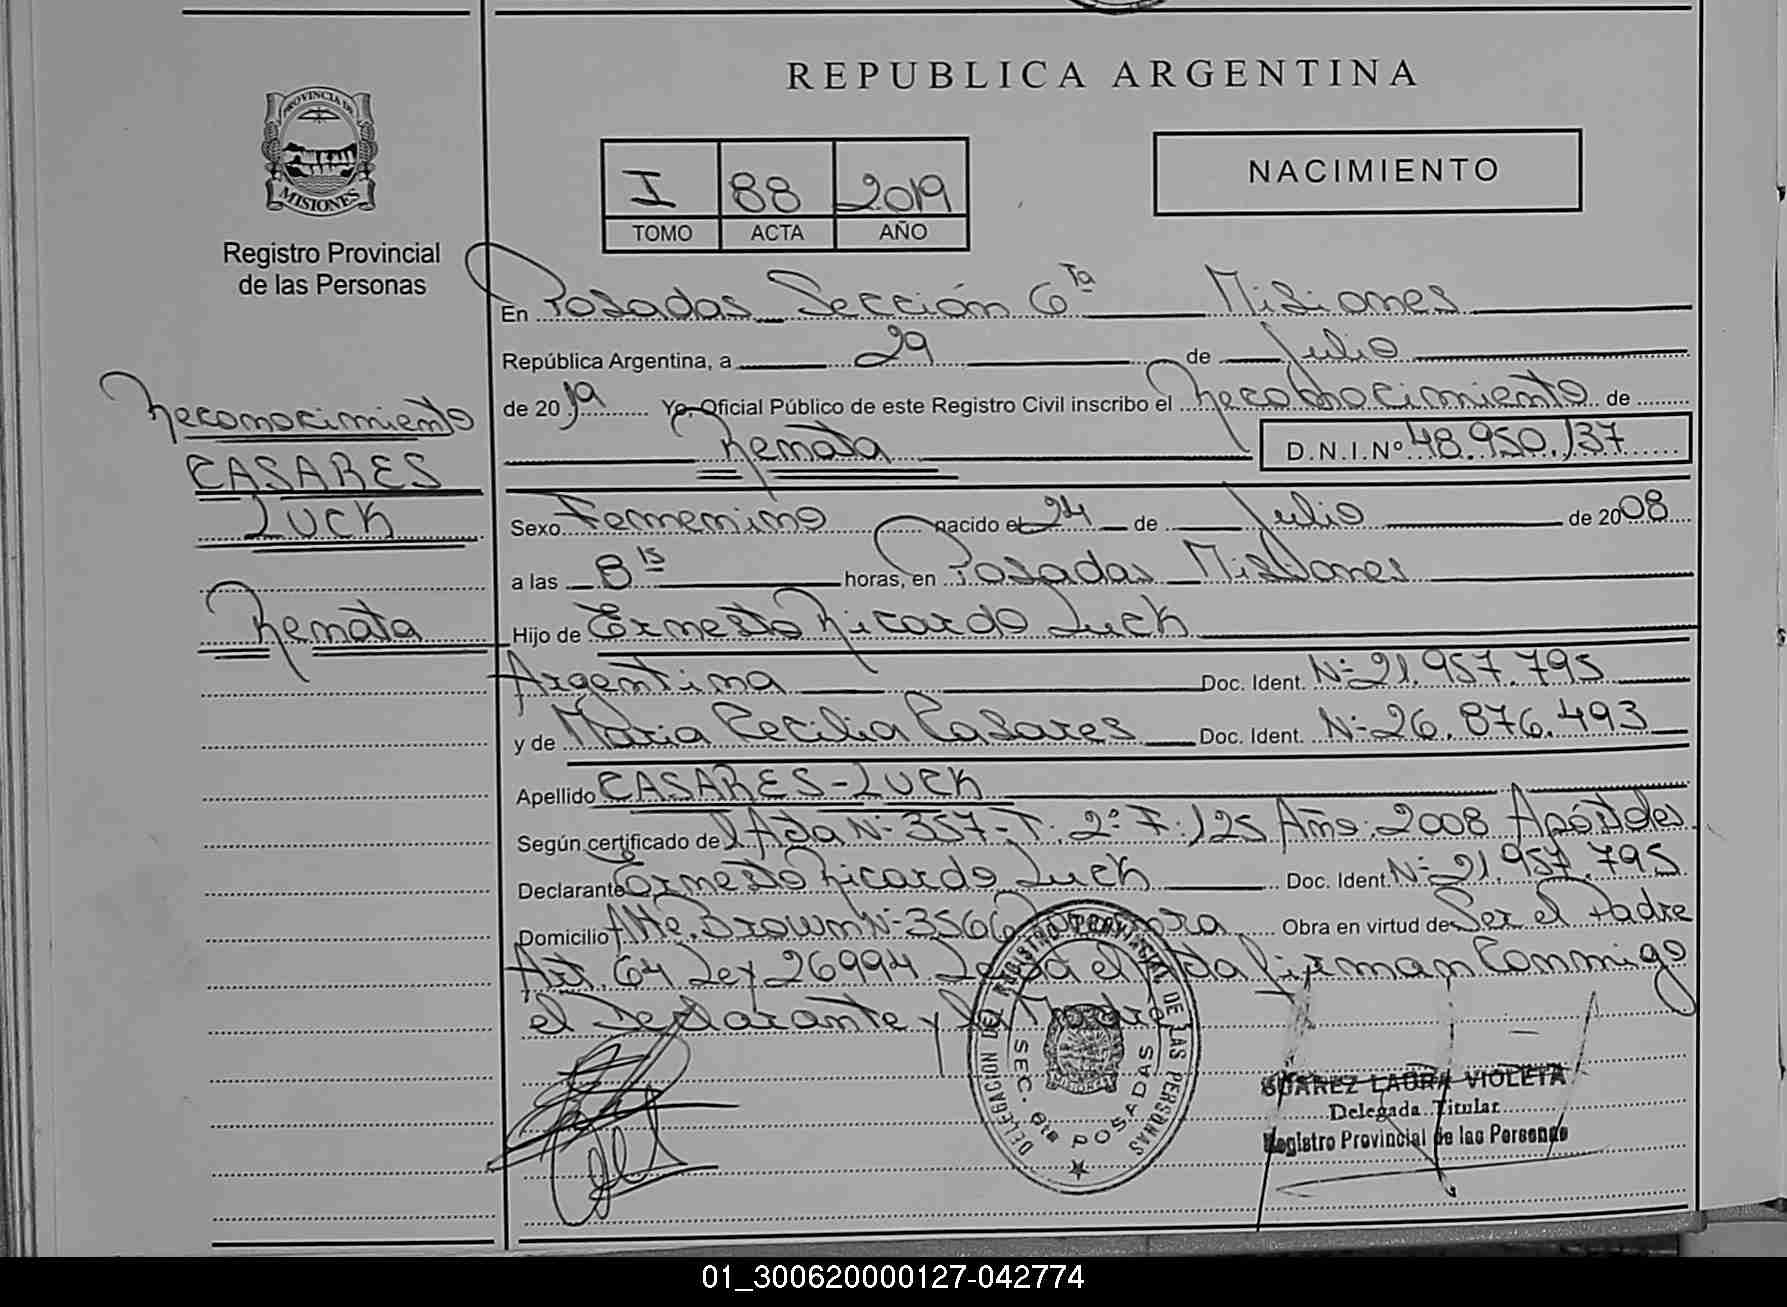 REPUBLICA ARGENTINA
PROVINCIA DE
MISIONES
Registro Provincial
de las Personas
I 88 2019
TOMO ACTA AÑO
NACIMIENTO
En Posadas Sección 6ta Misiones
República Argentina, a 29 de Julio
de 2019 Yo, Oficial Público de este Registro Civil inscribo el Reconocimiento de
Renata D.N.I.Nº 48.950.137
Reconocimiento
CASARES
LUCK
Renata
Sexo Femenino nacido el 24 de Julio de 2008
a las 8 hs horas, en Posadas Misiones
Hijo de Ernesto Ricardo Luck
Argentina Doc. Ident. Nº 21.957.795
y de Maria Cecilia Casares Doc. Ident. Nº 26.876.493
Apellido CASARES-LUCK
Según certificado de Acta Nº 357-T: 2º F: 125 Año: 2008 Apóstoles
Declarante Ernesto Ricardo Luck Doc. Ident. Nº 21.957.795
Domicilio Alte. Brown Nº 3566 Obra en virtud de Ser el Padre
Art. 64 Ley 26994 Leída el Acta firman Conmigo
el Declarante y la Madre
DELEGACION DEL REGISTRO PROVINCIAL DE LAS PERSONAS
SEC. 6ta POSADAS
MISIONES
SUAREZ LAURA VIOLETA
Delegada Titular
Registro Provincial de las Personas
01_300620000127-042774